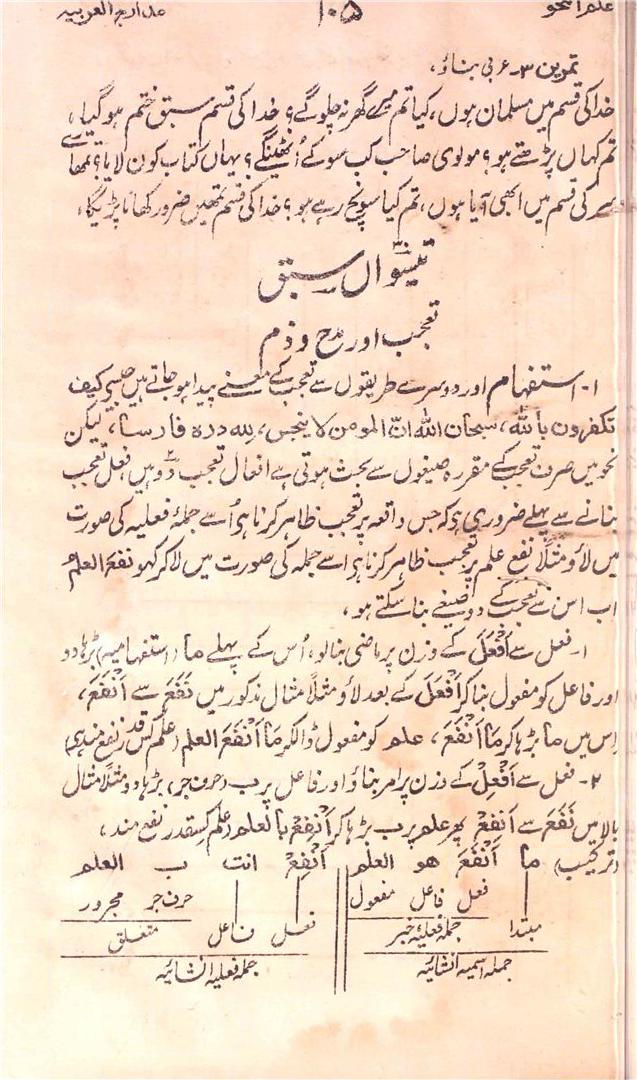 علم النحو ۱۰۵ مدارج العربیہ
تمرین ۳-۶ بی بناؤ،
خدا کی قسم میں مسلمان ہوں، کیا تم میرے گھر نہ چلو گے؟ خدا کی قسم سبق ختم ہو گیا،
تم کہاں پڑھتے ہو؟ مولوی صاحب کب سو کے اُٹھینگے؟ یہاں کتاب کون لایا؟ تمھارے
سر کی قسم میں ابھی آیا ہوں، تم کیا سونچ رہے ہو؟ خدا کی قسم تمھیں ضرور کھانا پڑیگا،
تیئیسواں سبق
تعجب اور مدح و ذم
۱- استفہام اور دوسرے طریقوں سے تعجب کے معنے پیدا ہو جاتے ہیں جیسے کیف
تکفرون باللہ، سبحان اللہ انّ المومن لا ینجس، للہ درہ فارسا، لیکن
نحو میں صرف تعجب کے مقررہ صیغوں سے بحث ہوتی ہے افعال تعجب دو ہیں، فعل تعجب
بنانے سے پہلے ضروری ہے کہ جس واقعہ پر تعجب ظاہر کرنا ہو اُسے جملۂ فعلیہ کی صورت
میں لاؤ مثلاً نفع علم پر تعجب ظاہر کرنا ہو اسے جملہ کی صورت میں لا کر کہو نفعَ العلم
اب اس سے تعجب کے دو صیغے بنا سکتے ہو،
۱- فعل سے اَفْعَلَ کے وزن پر ماضی بنا لو، اُس کے پہلے ما (استفہامیہ) بڑھا دو
اور فاعل کو مفعول بنا کر اَفْعَلَ کے بعد لاؤ مثلاً مثال مذکور میں نَفَعَ سے اَنْفَعَ،
اِس میں ما بڑھا کر مَا اَنْفَعَ، علم کو مفعول ڈالکر مَا اَنْفَعَ العلم (علم کس قدر نفع مند ہے)
۲- فعل سے اَفْعِلْ کے وزن پر امر بناؤ اور فاعل پر ب (حرف جر) بڑھا دو مثلاً مثال
بالا میں نَفَعَ سے اَنفِعْ پھر علم پر ب بڑھا کر اَنْفِعْ بالعلم (علم کسقدر نفع مند،
(ترکیب) ما اَنْفَعَ هو العلم اَنْفِعْ انت ب العلم
فعل فاعل مفعول حرف جر مجرور
مبتدا جملہ فعلیہ خبر فعل فاعل متعلق
جملہ اسمیہ انشائیہ جملہ فعلیہ انشائیہ